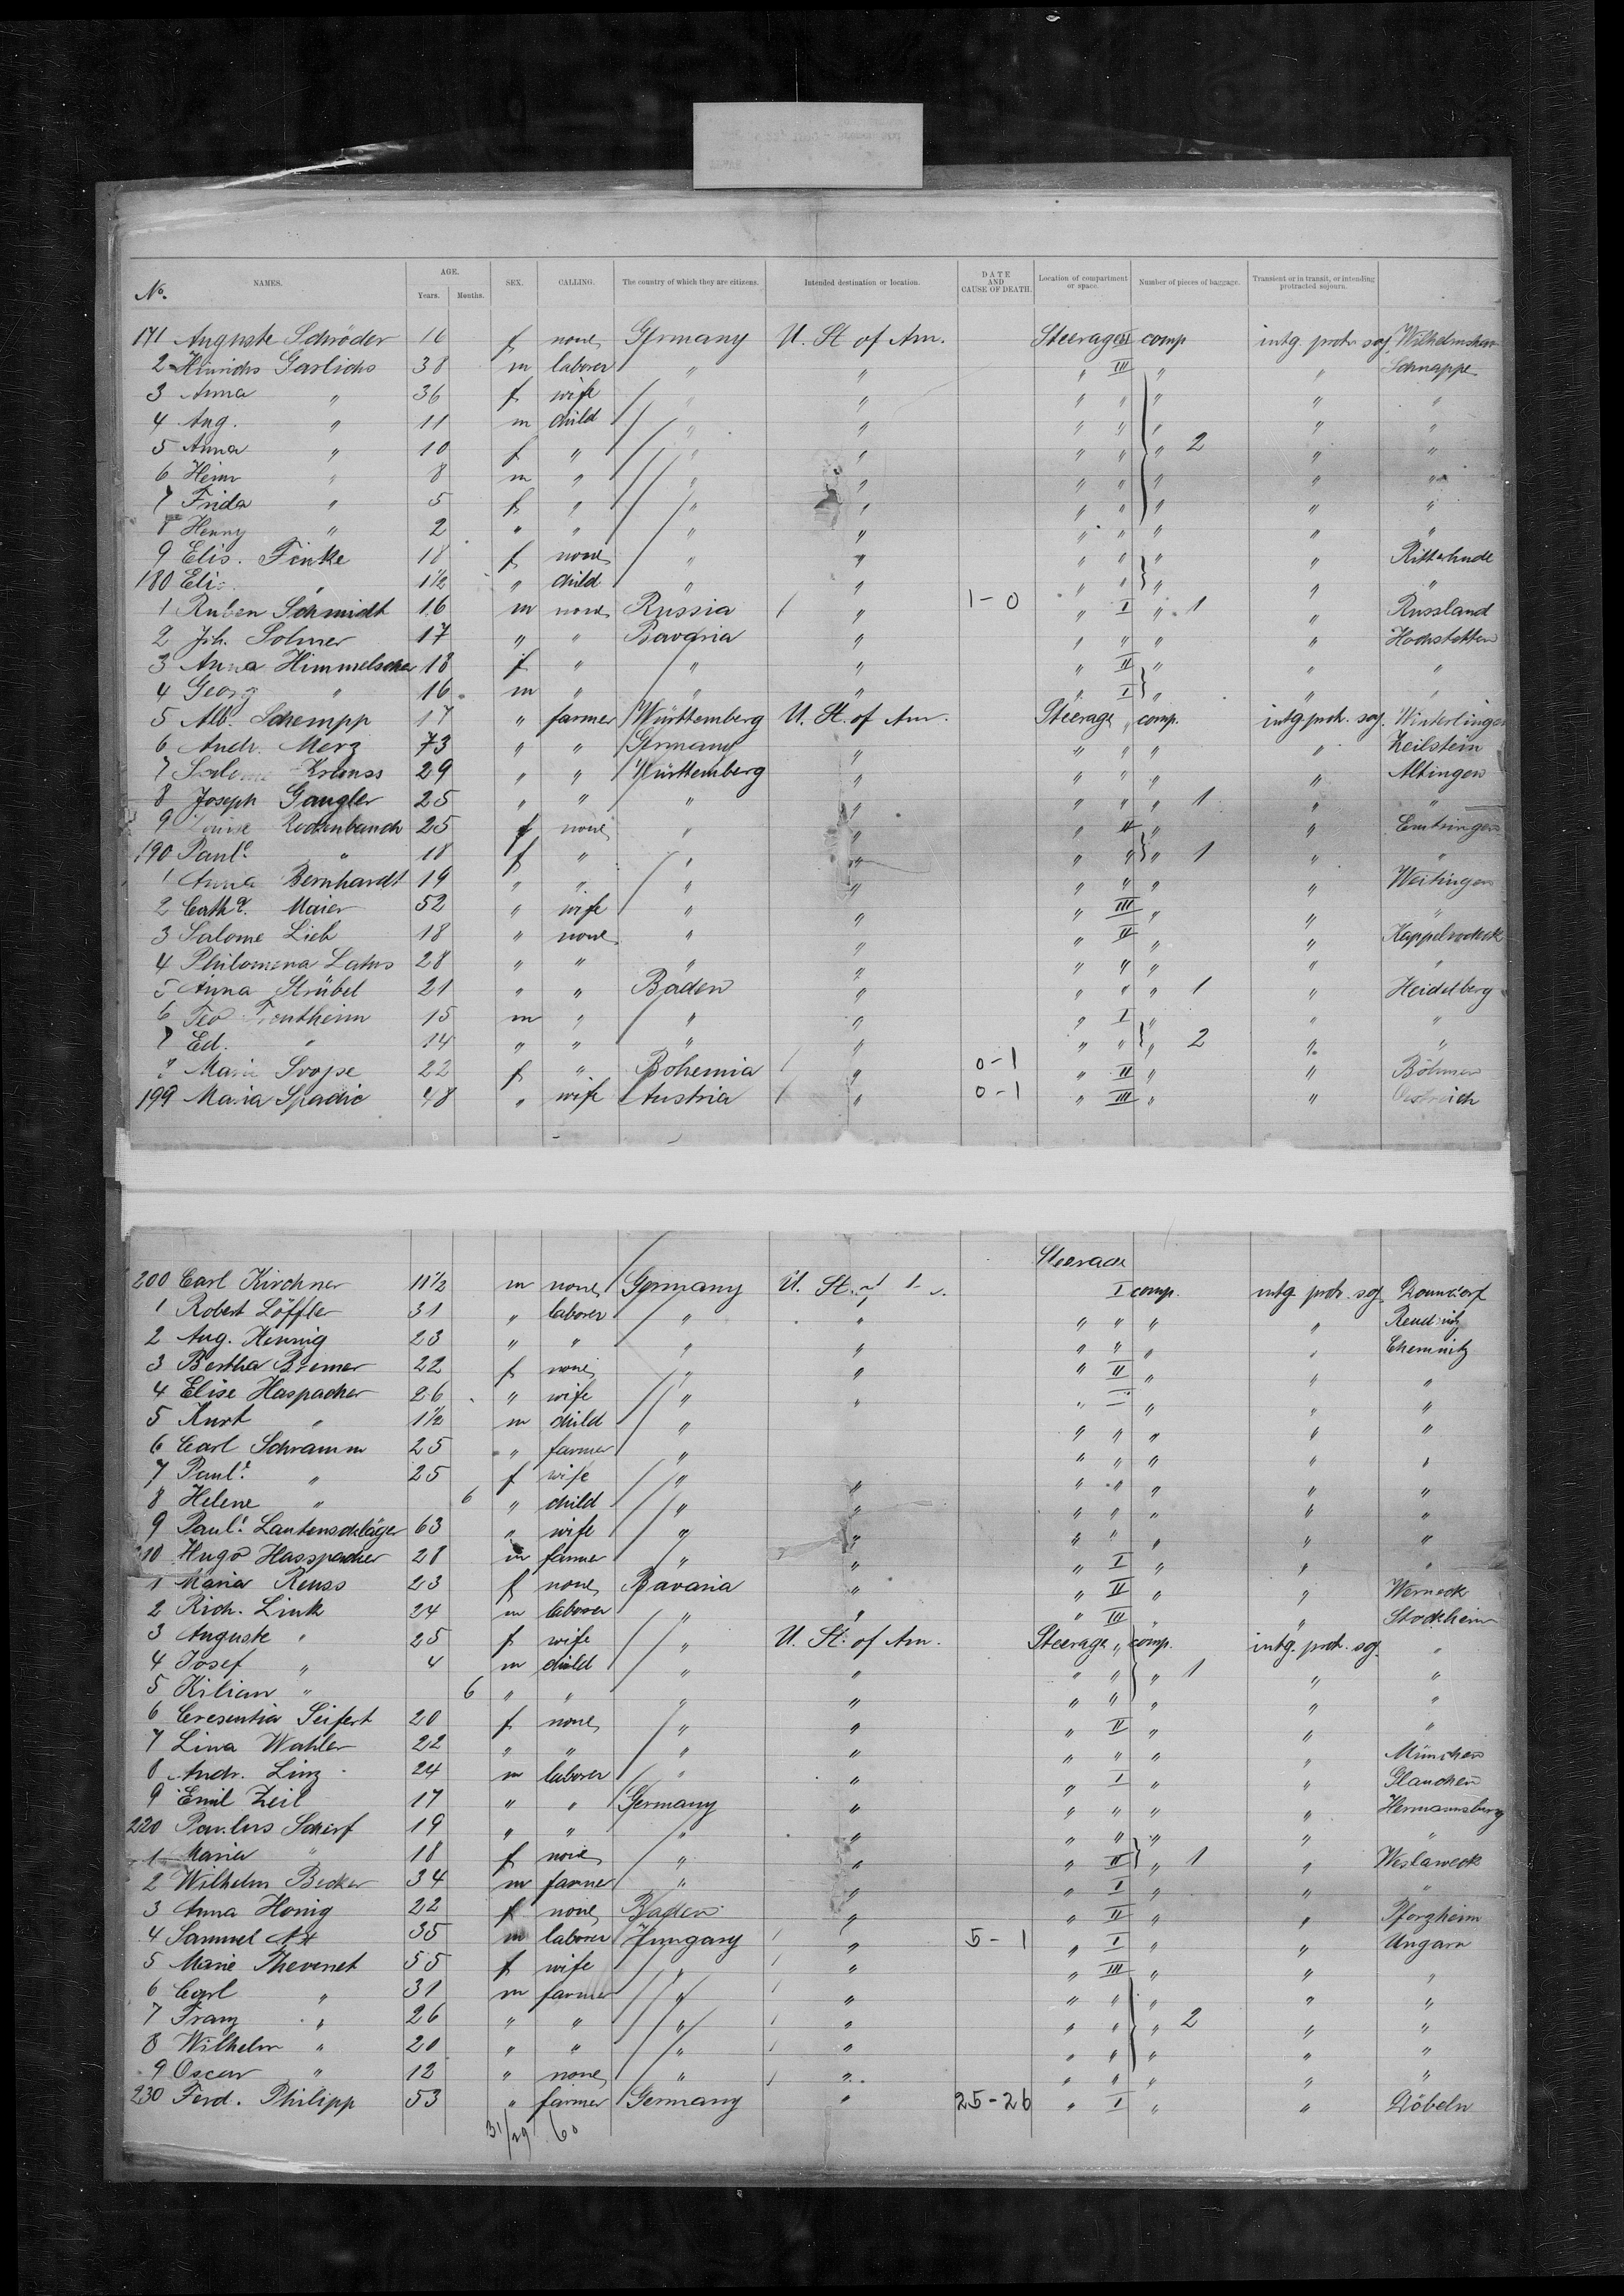 No. NAMES. AGE. Years. Months. SEX. CALLING. The country of which they are citizens. Intended destination or location. DATE AND CAUSE OF DEATH. Location of compartment or space. Number of pieces of baggage. Transient or in transit, or intending protracted sojourn.
171 Auguste Schröder 16 f none Germany U. St. of Am. Steerage II comp intg protr. soj. Wilhelmshav
2 Hinrichs Garlichs 38 m laborer " " " III " " Schnappe
3 Anna " 36 f wife " " " " " " "
4 Aug. " 11 m child " " " " " " "
5 Anna " 10 f " " " " " " 2 " "
6 Heinr " 8 m " " " " " " " "
7 Frida " 5 f " " " " " " " "
8 Henny " 2 " " " " " " " " "
9 Elis. Finke 18 f none " " " " " " Ritterhude
180 Elis " 1 1/2 " child " " " " " " "
1 Ruben Schmidt 16 m none Russia " 1-0 " I " 1 " Russland
2 Joh. Solmer 17 " " Bavaria " " " " " Hochstetten
3 Anna Himmelscher 18 f " " " " II " " "
4 Georg " 16 m " " " " I " " "
5 Alb. Schempp 17 " farmer Württemberg U. St. of Am. Steerage " comp. intg protr. soj. Winterlingen
6 Andr. Merz 73 " " Germany " " " " " Zeilstein
7 Krauss 29 " " Württemberg " " " " " Altingen
8 Joseph Gaugler 25 " " " " " " " 1 " "
9 Louise Rodenbauch 25 f none " " " II " "
190 Paule " 18 f " " " " " " 1 " "
1 Anna Bernhardt 19 " " " " " " " " Weitingen
2 Catha. Maier 52 " wife " " " III " " "
3 Salome Lieb 18 " none " " " II " " Kappelrodeck
4 Philomena Latus 28 " " " " " " " " "
5 Anna Strübel 21 " " Baden " " " " 1 " Heidelberg
6 Teo Trautheim 15 m " " " " I " " "
7 Ed. " 14 " " " " " " " 2 " "
8 Marie Svope 22 f " Bohemia " 0-1 " II " " Böhmen
199 Maria Spadic 48 " wife Austria " 0-1 " III " " Oestreich
200 Carl Kirchner 11 1/2 m none Germany U. St. Steerage I comp. intg protr. soj.
1 Robert Löffler 31 " laborer " " " " " " Reudnitz
2 Aug. Hennig 23 " " " " " " " " Chemnitz
3 Bertha Bremer 22 f none " " " II " " "
4 Elise Haspacher 26 " wife " " " " " "
5 Kurt " 1 1/2 m child " " " " " "
6 Carl Schramm 25 " farmer " " " " " "
7 Paule " 25 f wife " " " " " " "
8 Helene " 6 " child " " " " " " "
9 Paule Lautenschläger 63 " wife " " " " " " "
210 Hugo Hasspacher 28 m farmer " " " I " " "
1 Maria Reuss 23 f none Bavaria " " II " " Werneck
2 Rich. Link 24 m laborer " " " III " " Stockheim
3 Auguste " 25 f wife " U. St. of Am. Steerage " comp. intg. protr. soj. "
4 Josef " 4 m child " " " " " 1 " "
5 Kilian " 6 " " " " " " " " "
6 Cresentia Seifert 20 f none " " " II " " "
7 Lina Wahler 22 " " " " " " " " München
8 Andr. Linz 24 m laborer " " " I " " Glauchen
9 Emil Zeil 17 " " Germany " " " " " Hermannsburg
220 Paulus Scherf 19 " " " " " " " " "
1 Maria " 18 f none " " " II " 1 "
2 Wilhelm Becker 34 m farmer " " " I " " "
3 Anna Honig 22 f none Baden " " II " " Pforzheim
4 Samuel 35 m laborer Hungary " 5-1 " I " " Ungarn
5 Marie Thevenet 55 f wife " " " III " " "
6 Carl " 31 m farmer " " " " " " "
7 Franz " 26 " " " " " " " 2 " "
8 Wilhelm " 20 " " " " " " " " "
9 Oscar " 12 " none " " " " " " "
230 Ferd. Philipp 53 " farmer Germany " 25-26 " I " " Döbeln
31/29 60